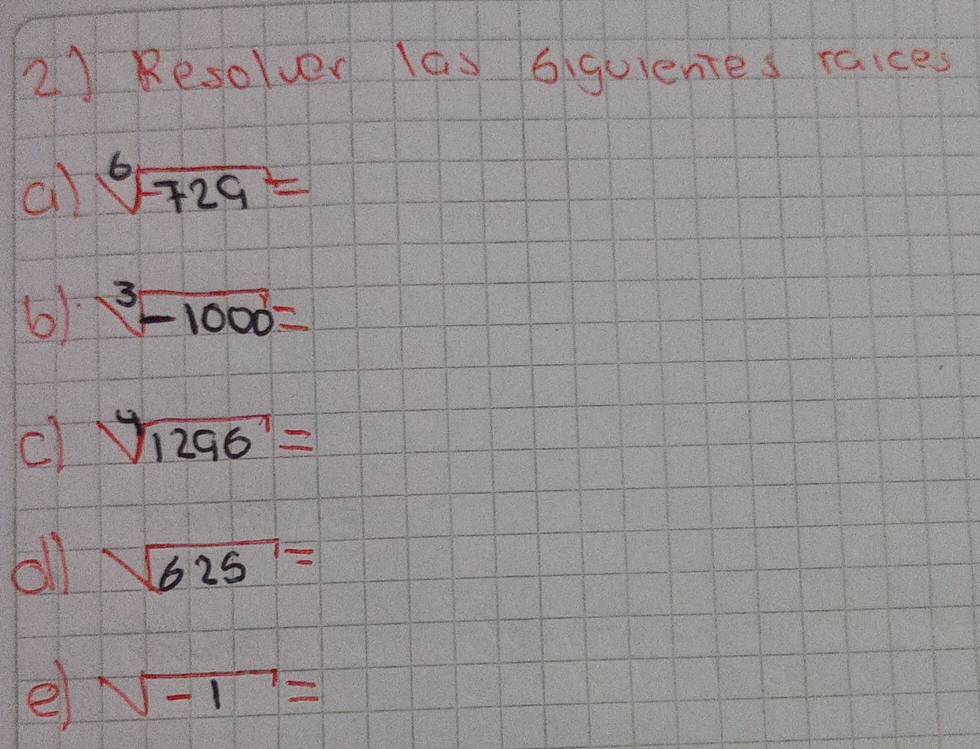 2) Resolver las siguientes raices
a) ⁶√-729 =
b) ³√-1000 =
c) ⁴√1296 =
d) √625 =
e) √-1 =